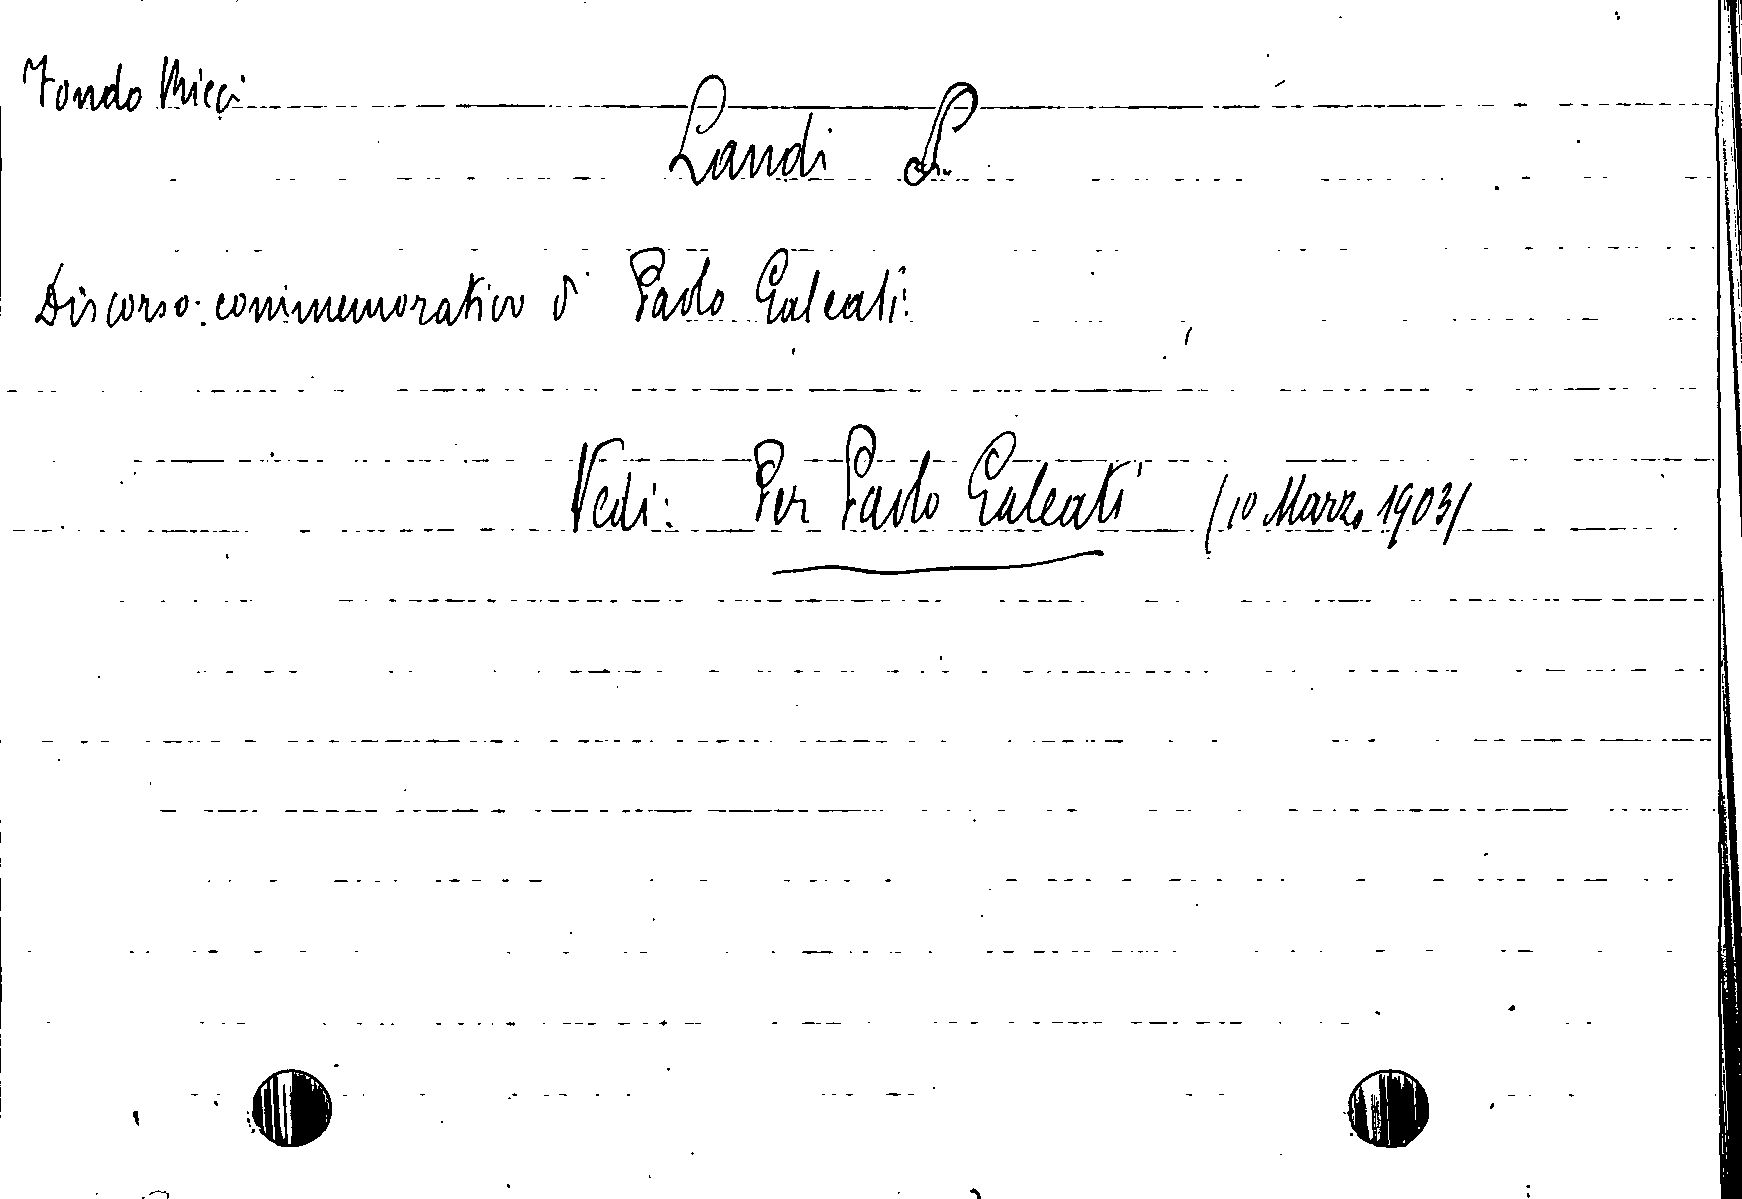 Fondo Ricci
Landi P.
Discorso commemorativo di Paolo Galeati.
Vedi: Per Paolo Galeati (10 Marzo 1903)